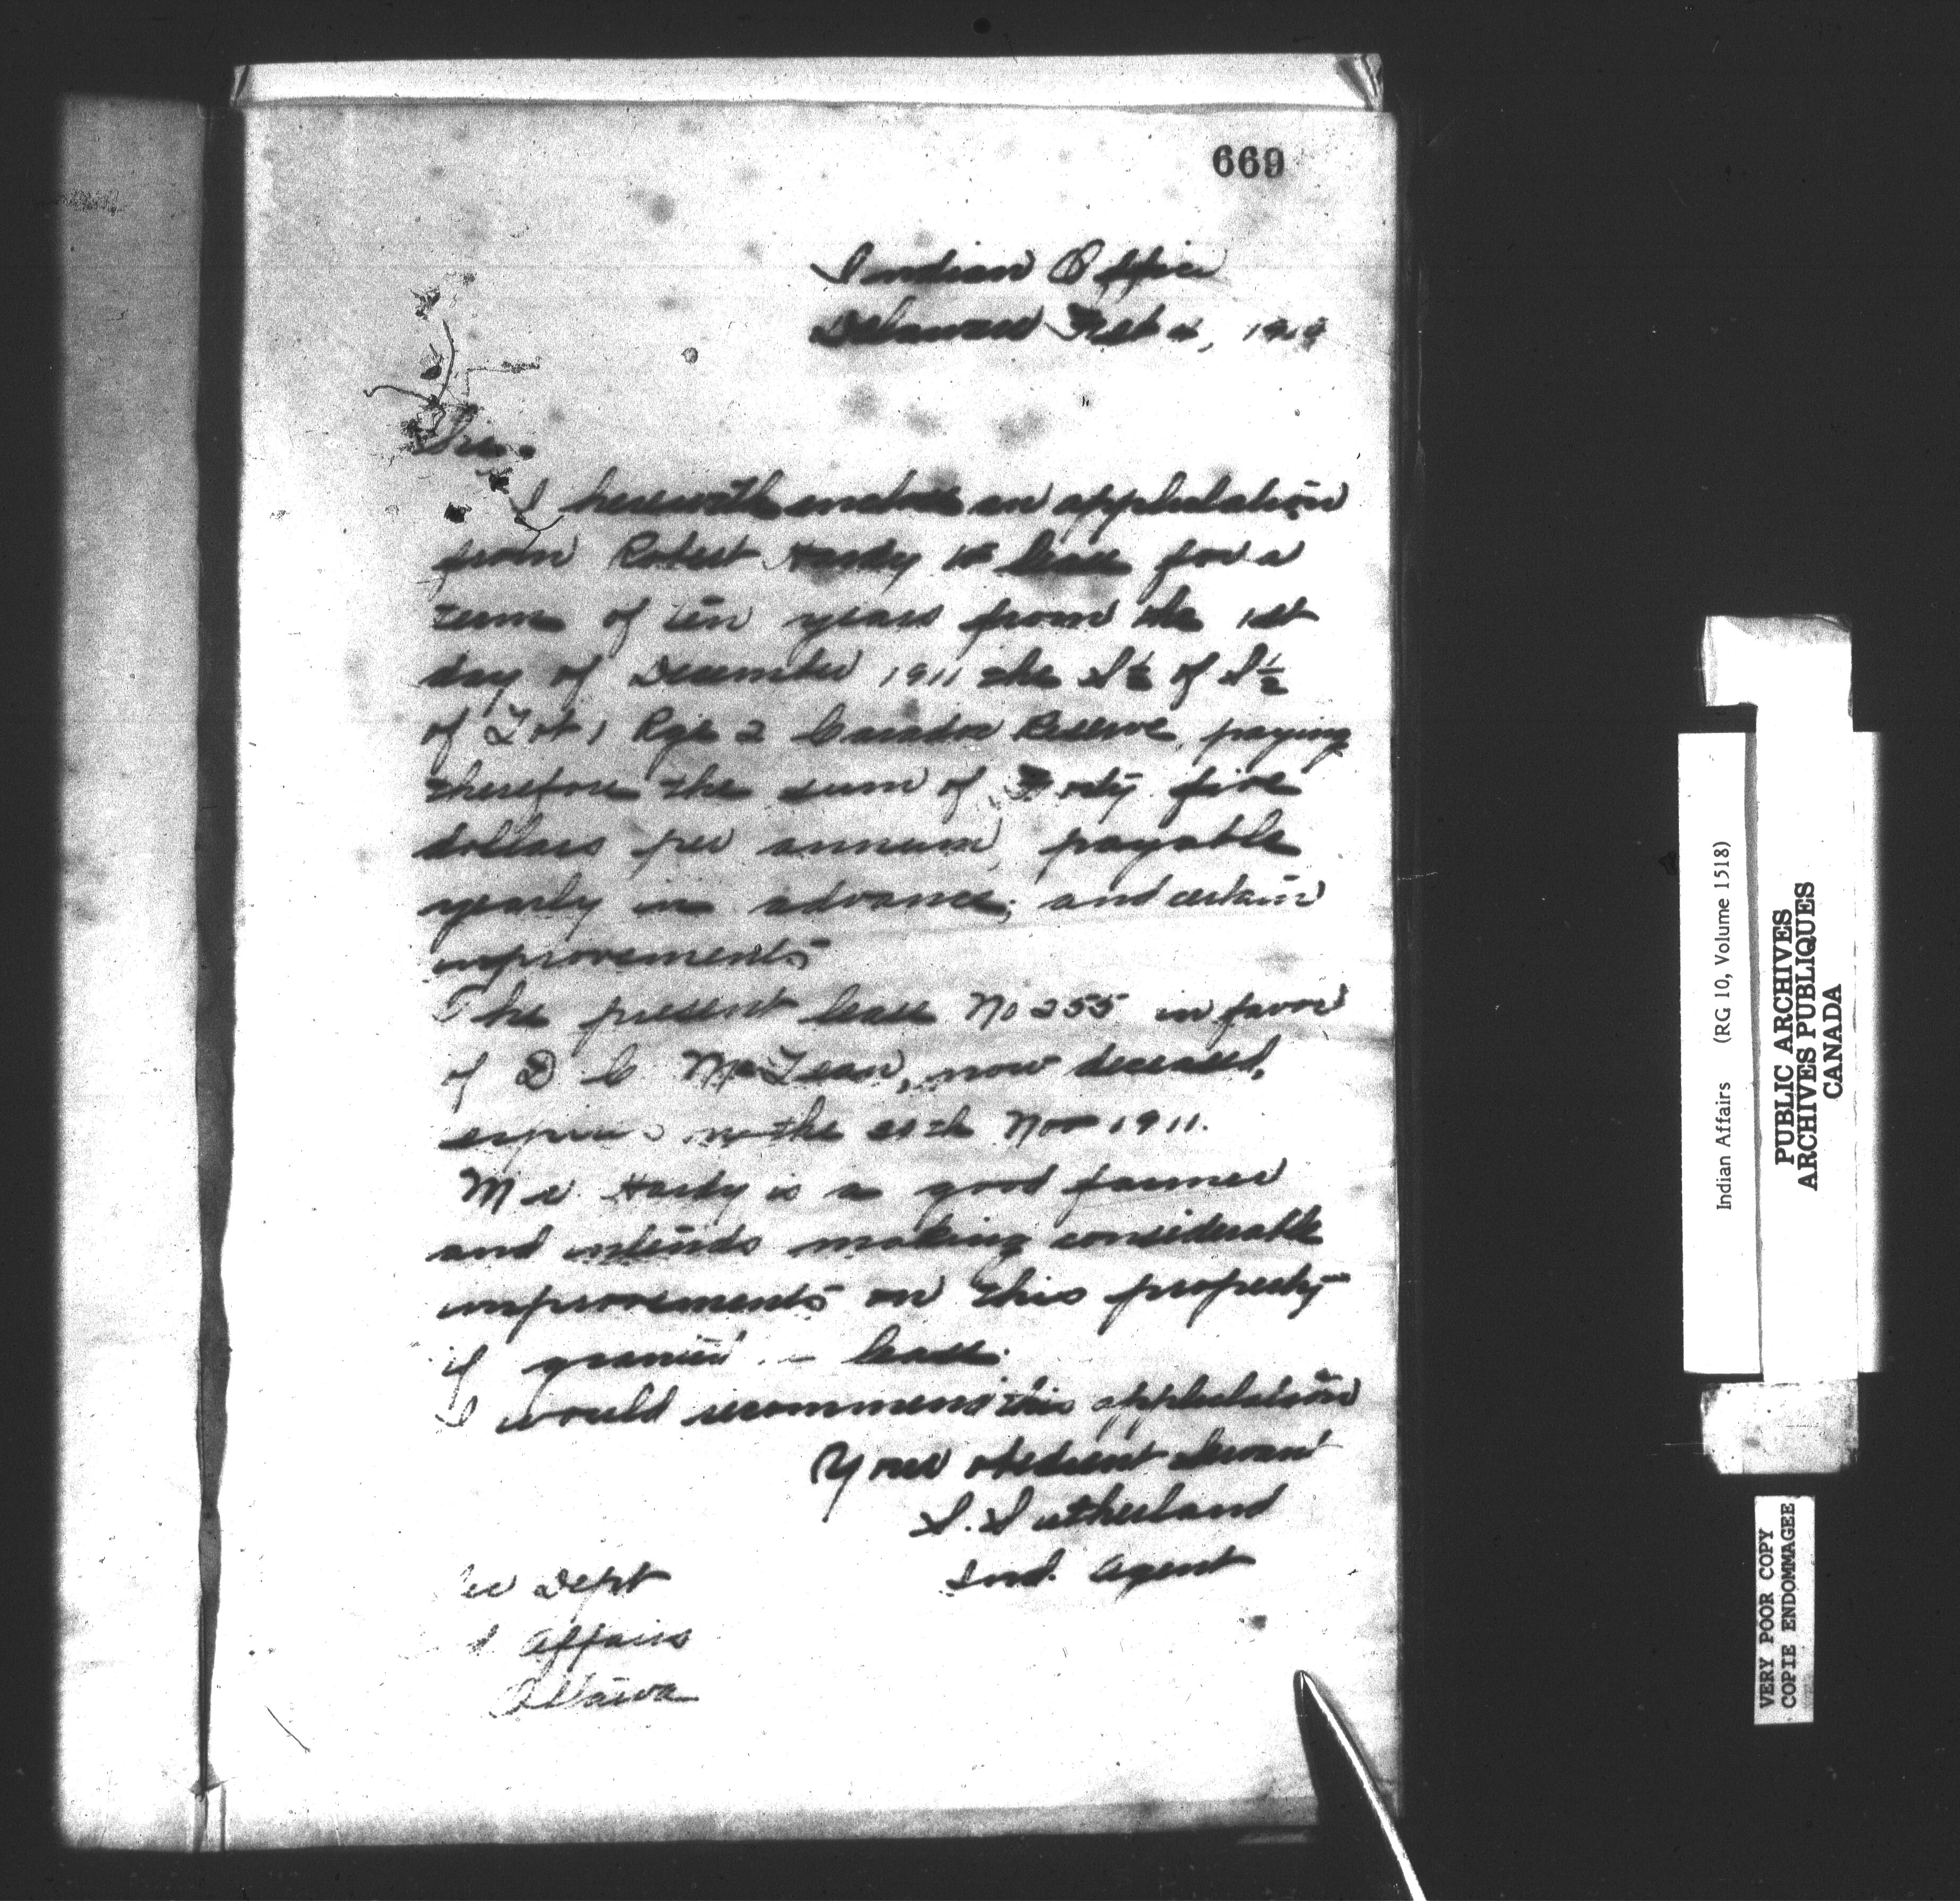 669
Indian Office
Delaware Feb 2, 190
Sir.
I herewith enclose an application
from Robert Hardy to lease for a
term of ten years from the 1st
day of December 1911 the S½ of S½
of Lot 1 Rge 2 Caradoc Reserve, paying
therefore the sum of Forty five
dollars per annum, payable
yearly in advance; and certain
improvements
The present lease No 255 in favor
of D C McLean, now deceased,
expires on the Nov 1911.
Mr. Hardy is a good farmer
and intends making considerable
improvements on this property
if granted lease.
I would recommend this application
Your obedient Servant
S. Sutherland
Ind. Agent
Dept
Affairs
Ottawa
Indian Affairs (RG 10, Volume 1518)
PUBLIC ARCHIVES
ARCHIVES PUBLIQUES
CANADA
VERY POOR COPY
COPIE ENDOMMAGEE